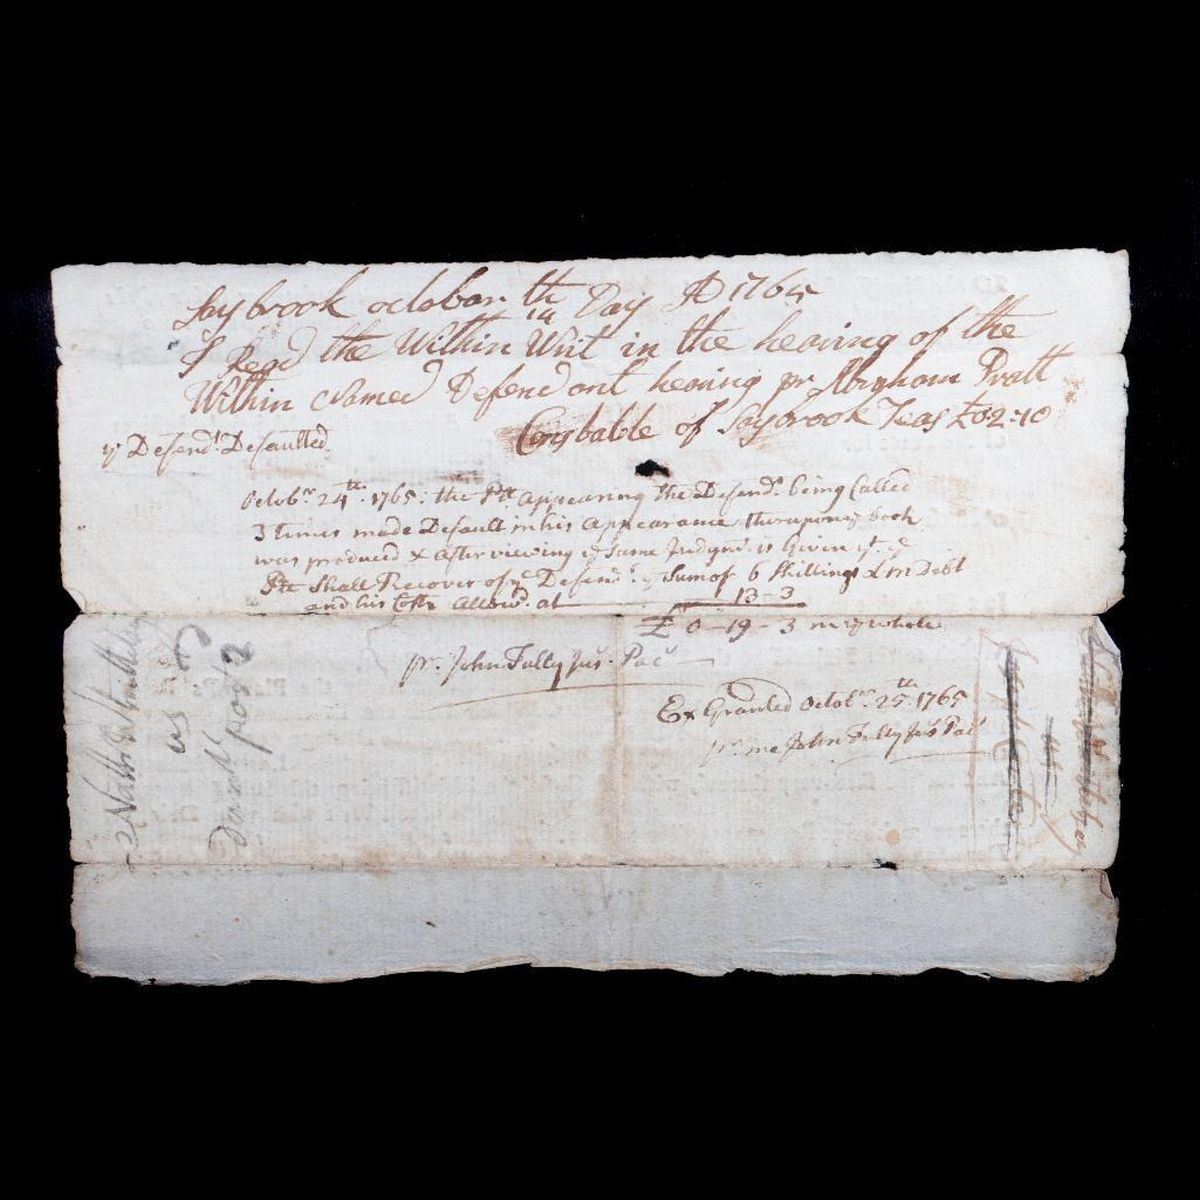 Saybrook october th Day AD 1765
I Read the Within Writ in the hearing of the
Within Named Defendant hearing pr Abraham Pratt
Constable of Saybrook Feas £0=2=10
ye Defendt. Defaulted
Octobr. 24th. 1765: the Ptt appearing the Defendt. being Called
3 times made Default in his Appearance thereupon ye book
was produced & after viewing ye Same Judgmt. is Given yt. ye
Ptt Shall Recover of ye Defendt. ye Sum of 6 Shillings LM Debt
and his Costs Allowd. at 13-3
£ 0-19-3 in ye whole
pr. John Tully Jus. Pacs
Ex Granted Octobr. 25th. 1765
pr. me John Tully Jus Pacs
vs